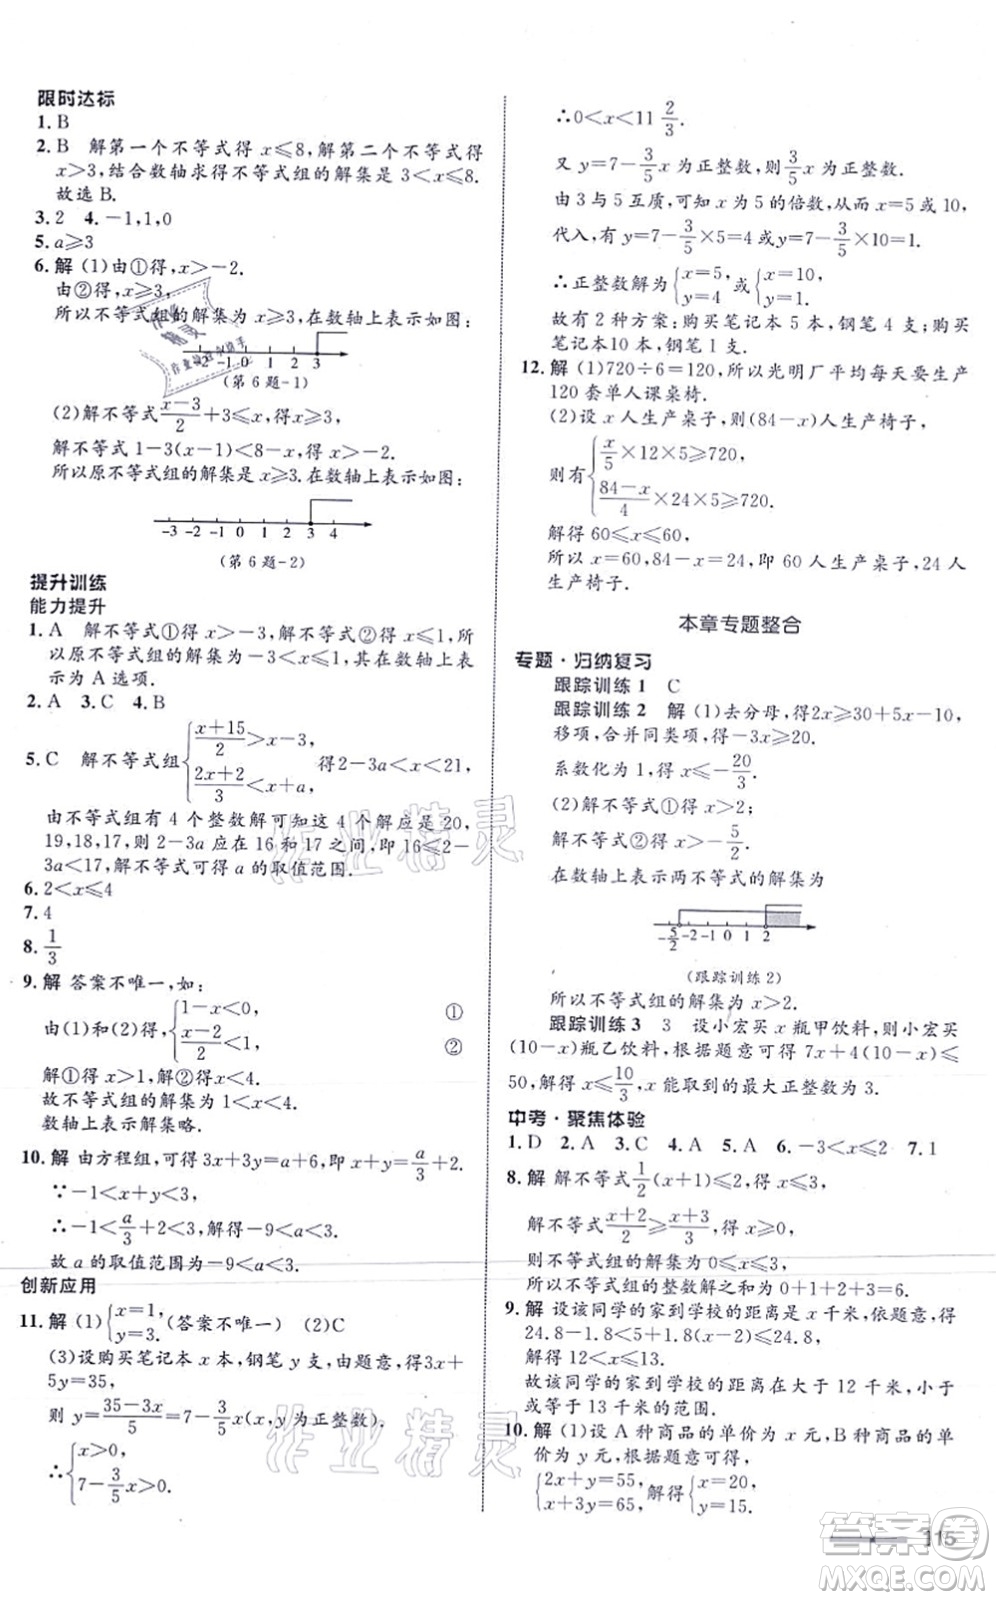 限时达标
1. B
2. B 解第一个不等式得 x⩽8,解第二个不等式得
x>3,结合数轴求得不等式组的解集是 3<x⩽8.
故选 B.
3. 2 4. -1,1,0
5. a⩾3
6. 解 (1)由①得,x>-2.
由②得,x⩾3,
所以不等式组的解集为 x⩾3,在数轴上表示如图:
-2 -1 0 1 2 3 4
(第 6 题-1)
(2)解不等式 (x-3)/2+3⩽x,得x⩾3,
解不等式 1-3(x-1)<8-x,得 x>-2.
所以原不等式组的解集为 x⩾3.在数轴上表示如图:
-3 -2 -1 0 1 2 3 4
(第 6 题-2)
提升训练
能力提升
1. A 解不等式①得 x>-3,解不等式②得 x⩽1,所
以原不等式组的解集为-3<x⩽1,在数轴上表
示为 A 选项.
2. A 3. C 4. B
5. C 解不等式组{(x+15)/2>x-3, (2x+2)/3<x+a, 得2-3a<x<21,
由不等式组有 4 个整数解可知这 4 个解应是 20,
19,18,17,则 2-3a 应在 16 和 17 之间,即 16⩽2-
3a<17,解不等式可得 a 的取值范围.
6. 2<x⩽4
7. 4
8. 1/3
9. 解 答案不唯一,如:
由(1)和(2)得,{1-x<0, ① (x-2)/2<1, ②
解①得x>1,解②得 x<4.
故不等式组的解集为 1<x<4.
数轴上表示解集略.
10. 解 由方程组,可得 3x+3y=a+6,即 x+y=a/3+2.
∵-1<x+y<3,
∴-1<a/3+2<3,解得-9<a<3.
故 a 的取值范围为-9<a<3.
创新应用
11. 解 (1){x=1, y=3.(答案不唯一) (2)C
(3)设购买笔记本 x 本,钢笔 y 支,由题意,得3x+
5y=35,
则 y=(35-3x)/5=7-3/5x(x,y 为正整数).
∴{x>0, 7-3/5x>0.
∴0<x<11 2/3.
又 y=7-3/5x 为正整数,则3/5x为正整数.
由 3 与 5 互质,可知 x 为 5 的倍数,从而 x=5或10,
代入,有 y=7-3/5×5=4 或 y=7-3/5×10=1.
∴正整数解为{x=5, y=4 或{x=10, y=1.
故有 2 种方案:购买笔记本 5 本,钢笔 4 支;购买
笔记本10 本,钢笔 1 支.
12. 解 (1)720÷6=120,所以光明厂平均每天要生产
120 套单人课桌椅.
(2)设 x 人生产桌子,则(84-x)人生产椅子,
则有{x/5×12×5⩾720, (84-x)/4×24×5⩾720.
解得 60⩽x⩽60,x=60.
所以 x=60,84-x=24,即 60 人生产桌子,24 人
生产椅子.
本章专题整合
专题·归纳复习
跟踪训练 1 C
跟踪训练 2 解 (1)去分母,得2x⩾30+5x-10,
移项,合并同类项,得-3x⩾20.
系数化为 1,得 x⩽-20/3.
(2)解不等式,得 x>2,
解不等式,得 x>-5/2.
在数轴上表示两不等式的解集为
-5/2 -2 -1 0 1 2
(跟踪训练 2)
所以不等式组的解集为 x>2.
跟踪训练 3 3 设小宏买 x 瓶甲饮料,则小宏买
(10-x)瓶乙饮料,根据题意可得 7x+4(10-x)⩽
50,解得 x⩽10/3,x 能取到的最大正整数为 3.
中考·聚焦体验
1. D 2. A 3. C 4. A 5. A 6. -3<x⩽2 7. 1
8. 解 解不等式1/2(x+1)⩽2,得 x⩽3,
解不等式(x+2)/2⩾(x+3)/3,得 x⩾0,
则不等式组的解集为 0⩽x⩽3,
所以不等式组的整数解之和为 0+1+2+3=6.
9. 解 设该同学的家到学校的距离是 x 千米,依题意,得
24.8-1.8<5+1.8(x-2)⩽24.8,
解得 12<x⩽13.
故该同学的家到学校的距离在大于 12 千米,小于
或等于 13 千米的范围.
10. 解 (1)设 A 种商品的单价为 x 元,B 种商品的单
价为 y 元,根据题意,得
{2x+y=55, x+3y=65, 解得{x=20, y=15.
115
作业精灵
作业精灵
答案圈
MXQE.COM